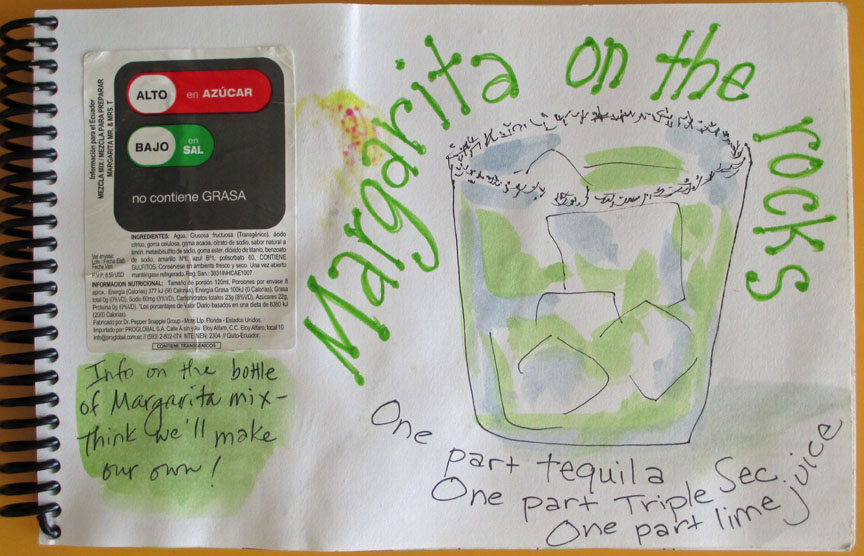 Información para el Ecuador
MEZCLA MIX / MEZCLA PARA PREPARAR
MARGARITA MR. & MRS. T
ALTO en AZÚCAR
BAJO en SAL
no contiene GRASA
INGREDIENTES: Agua, Glucosa fructuosa (Transgénico), ácido
cítrico, goma celulosa, goma acacia, citrato de sodio, sabor natural a
limón, metabisulfito de sodio, goma ester, dióxido de titanio, benzoato
de sodio, amarillo Nº6, azul Bº1, polisorbato 60, CONTIENE
SULFITOS, Consérvese en ambiente fresco y seco. Una vez abierto
manténgase refrigerado. Reg. San.: 3831INHCAE1007
Ver envase:
Lote / Fecha Elab.
Fecha Ven.
P.V.P. 9.59 USD
INFORMACION NUTRICIONAL: Tamaño de porción 120ml, Porciones por envase 8
aprox. Energía (Calorías) 377 kJ (90 Calorías), Energía Grasa 100kJ (0 Calorías), Grasa
total 0g (0%VD), Sodio 60mg (3%VD), Carbohidratos totales 23g (8%VD), Azúcares 22g,
Proteína 0g (0%VD). *Los porcentajes de Valor Diario basados en una dieta de 8380 kJ
(2000 Calorías).
Fabricado por: Dr. Pepper Snapple Group - Mote Llp. Florida - Estados Unidos.
Importado por: PROGLOBAL S.A. Calle A s/n y Av. Eloy Alfaro, C.C. Eloy Alfaro, local 10
info@proglobal.com.ec // (593) 2-802-074 NTE INEN: 2304 // Quito-Ecuador.
CONTIENE TRANSGENICOS
Info on the bottle
of Margarita mix -
think we'll make
our own!
Margarita on the rocks
One part tequila
One part Triple Sec.
One part lime juice